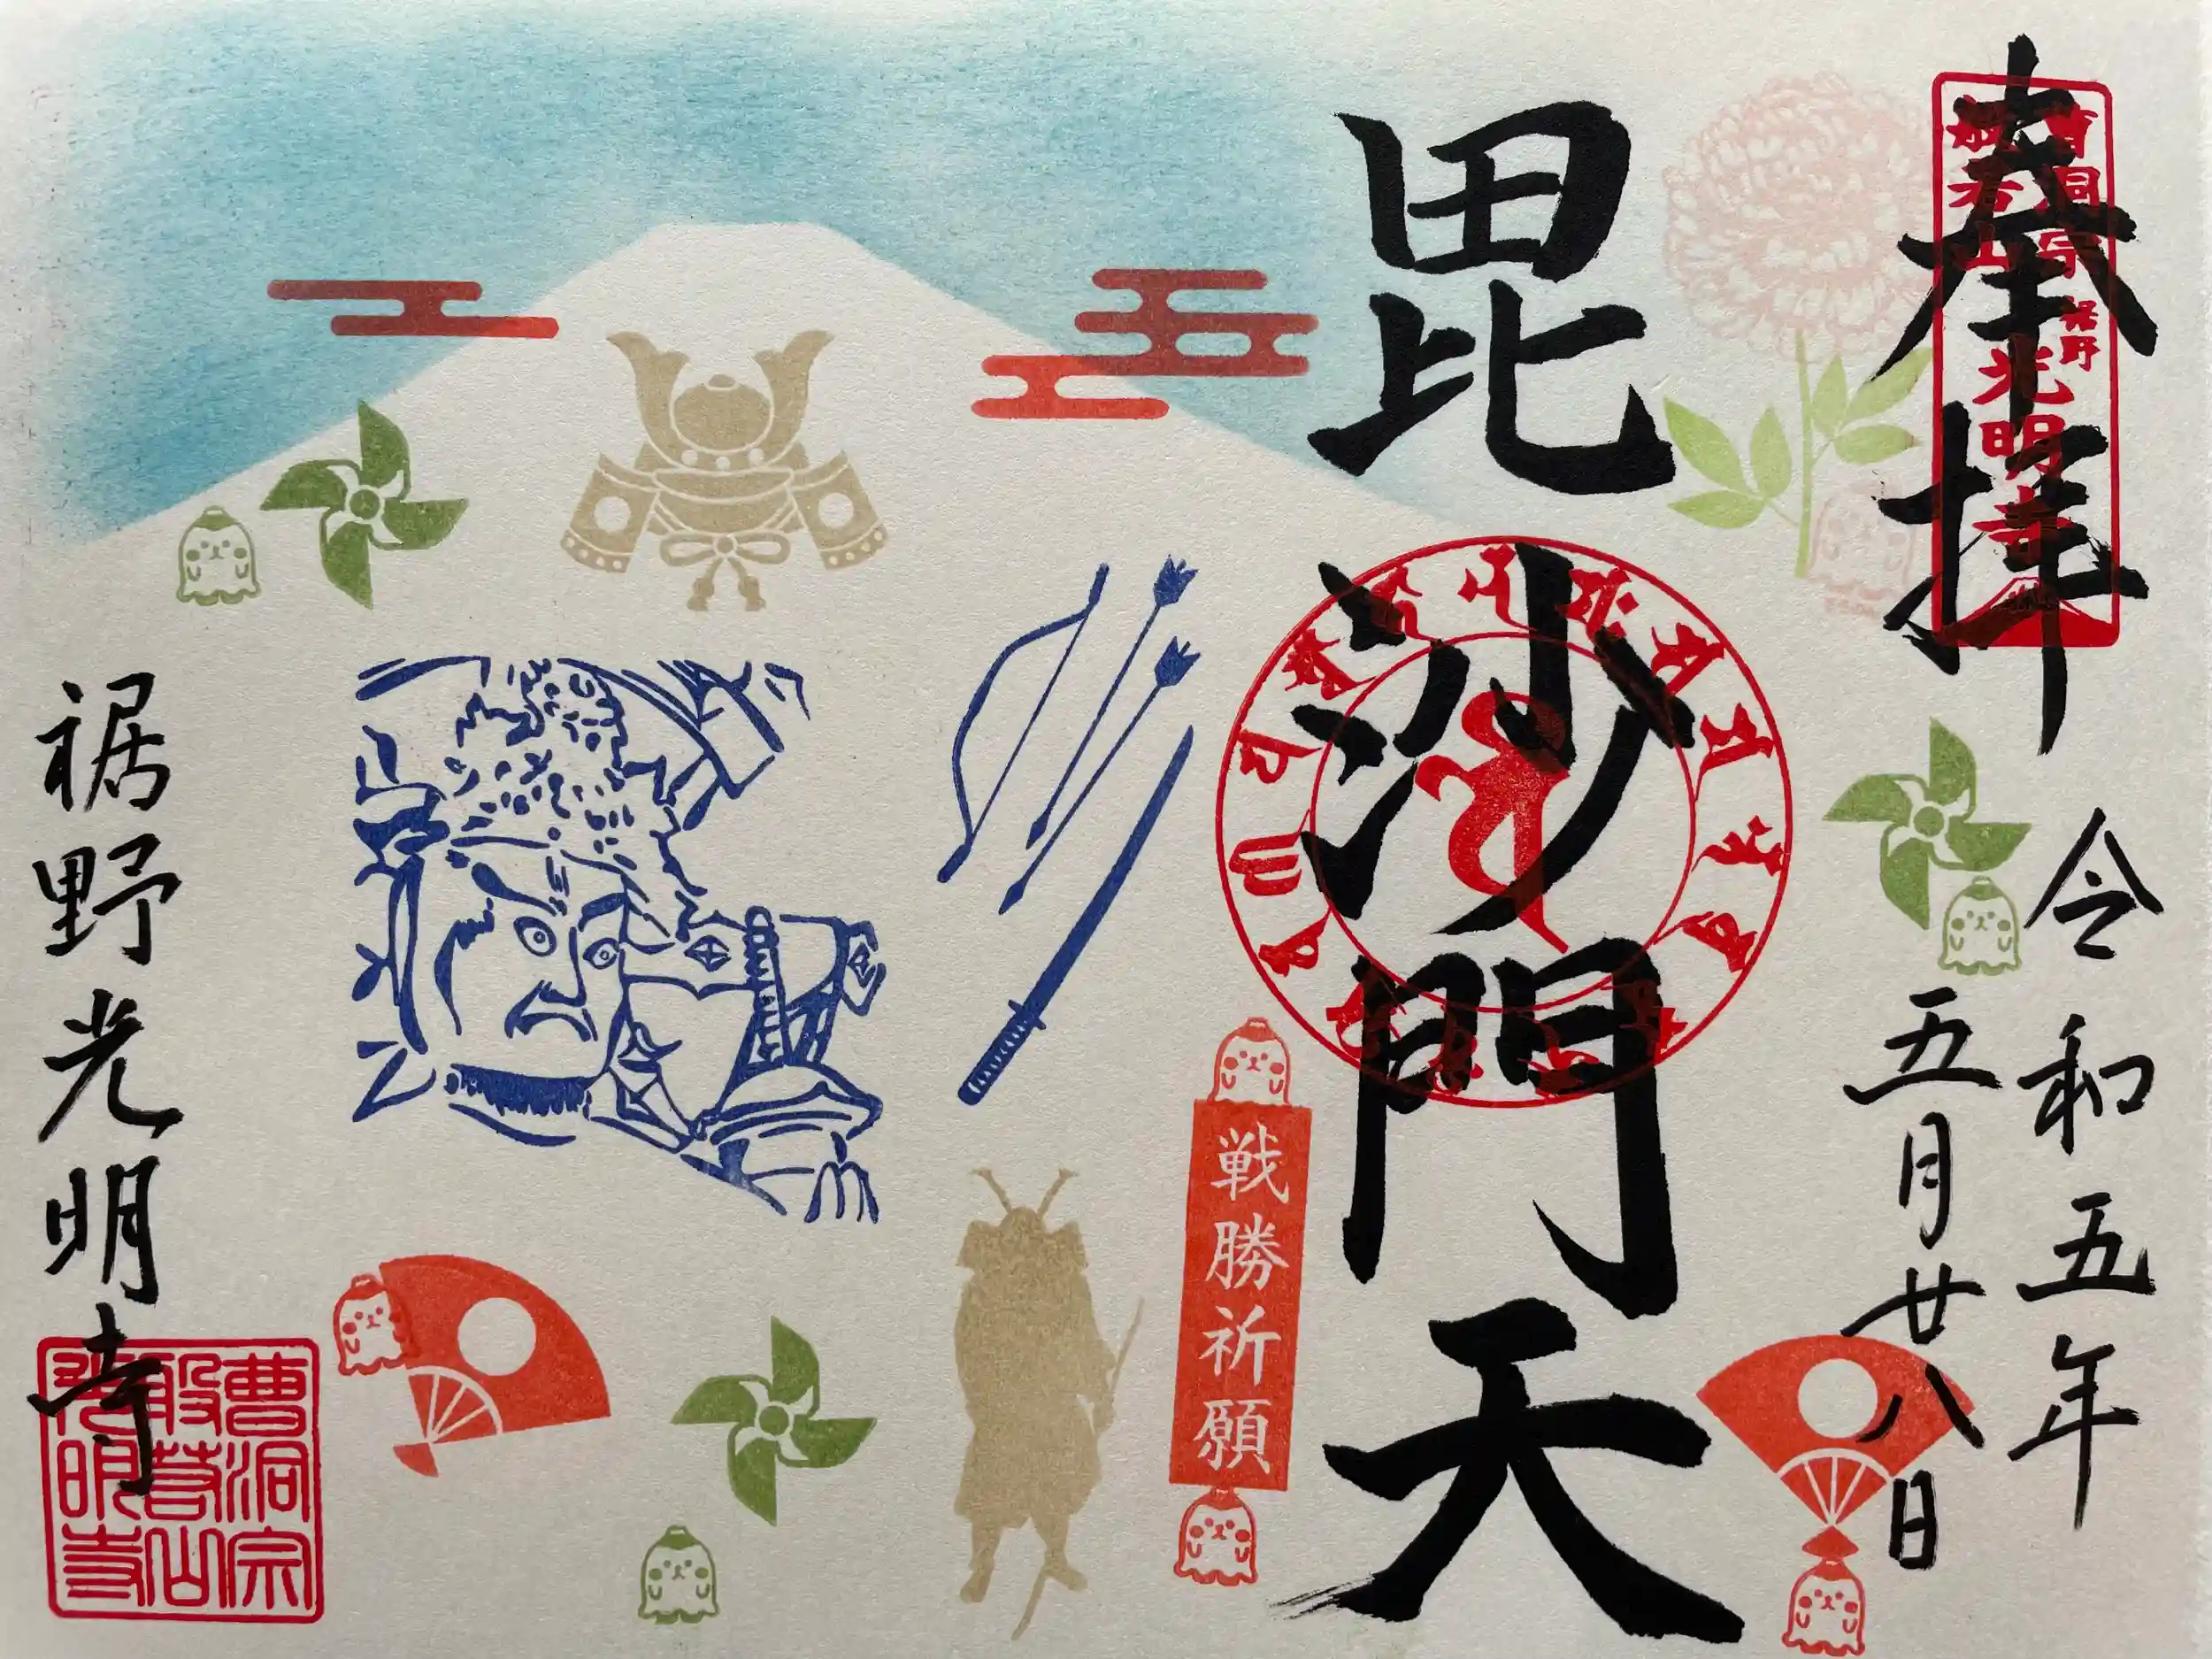 奉拝
曹洞宗
般若山
裾野
光明寺
令和五年
五月廿八日
毘沙門天
戦勝祈願
裾野光明寺
曹洞宗
般若山
光明寺